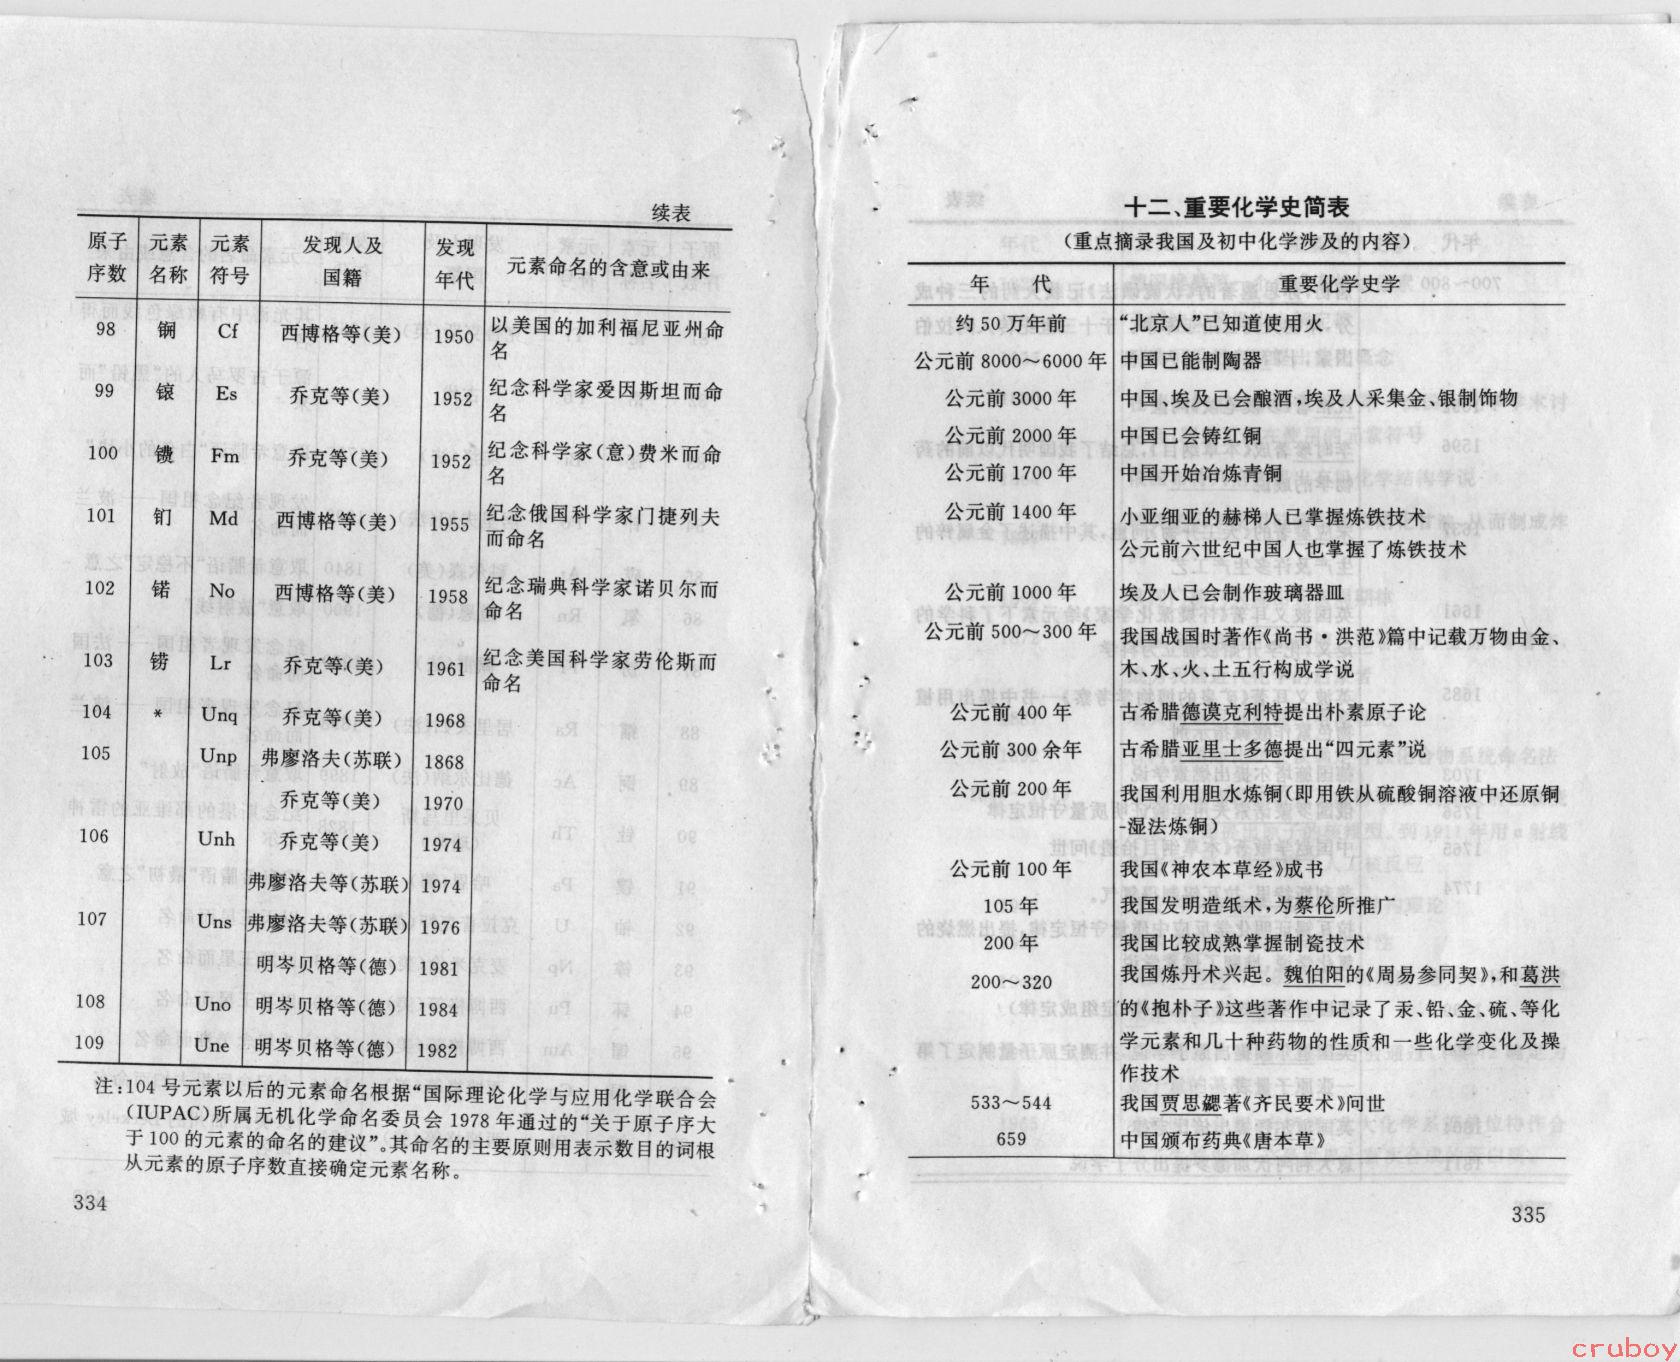 续表
原子 元素 元素 发现人及 发现 元素命名的含意或由来
序数 名称 符号 国籍 年代
98 锎 Cf 西博格等(美) 1950 以美国的加利福尼亚州命
名
99 锿 Es 乔克等(美) 1952 纪念科学家爱因斯坦而命
名
100 镄 Fm 乔克等(美) 1952 纪念科学家(意)费米而命
名
101 钔 Md 西博格等(美) 1955 纪念俄国科学家门捷列夫
而命名
102 锘 No 西博格等(美) 1958 纪念瑞典科学家诺贝尔而
命名
103 铹 Lr 乔克等(美) 1961 纪念美国科学家劳伦斯而
命名
104 * Unq 乔克等(美) 1968
105 Unp 弗廖洛夫(苏联) 1868
乔克等(美) 1970
106 Unh 乔克等(美) 1974
弗廖洛夫等(苏联) 1974
107 Uns 弗廖洛夫等(苏联) 1976
明岑贝格等(德) 1981
108 Uno 明岑贝格等(德) 1984
109 Une 明岑贝格等(德) 1982
注:104 号元素以后的元素命名根据“国际理论化学与应用化学联合会
(IUPAC)所属无机化学命名委员会 1978 年通过的“关于原子序大
于 100 的元素的命名的建议”。其命名的主要原则用表示数目的词根
从元素的原子序数直接确定元素名称。
334
十二、重要化学史简表
(重点摘录我国及初中化学涉及的内容)
年 代 重要化学史学
约 50 万年前 “北京人”已知道使用火
公元前 8000～6000 年 中国已能制陶器
公元前 3000 年 中国、埃及已会酿酒,埃及人采集金、银制饰物
公元前 2000 年 中国已会铸红铜
公元前 1700 年 中国开始冶炼青铜
公元前 1400 年 小亚细亚的赫梯人已掌握炼铁技术
公元前六世纪中国人也掌握了炼铁技术
公元前 1000 年 埃及人已会制作玻璃器皿
公元前 500～300 年 我国战国时著作《尚书·洪范》篇中记载万物由金、
木、水、火、土五行构成学说
公元前 400 年 古希腊德谟克利特提出朴素原子论
公元前 300 余年 古希腊亚里士多德提出“四元素”说
公元前 200 年 我国利用胆水炼铜(即用铁从硫酸铜溶液中还原铜
-湿法炼铜)
公元前 100 年 我国《神农本草经》成书
105 年 我国发明造纸术,为蔡伦所推广
200 年 我国比较成熟掌握制瓷技术
200～320 我国炼丹术兴起。魏伯阳的《周易参同契》,和葛洪
的《抱朴子》这些著作中记录了汞、铅、金、硫、等化
学元素和几十种药物的性质和一些化学变化及操
作技术
533～544 我国贾思勰著《齐民要术》问世
659 中国颁布药典《唐本草》
335
cruboy